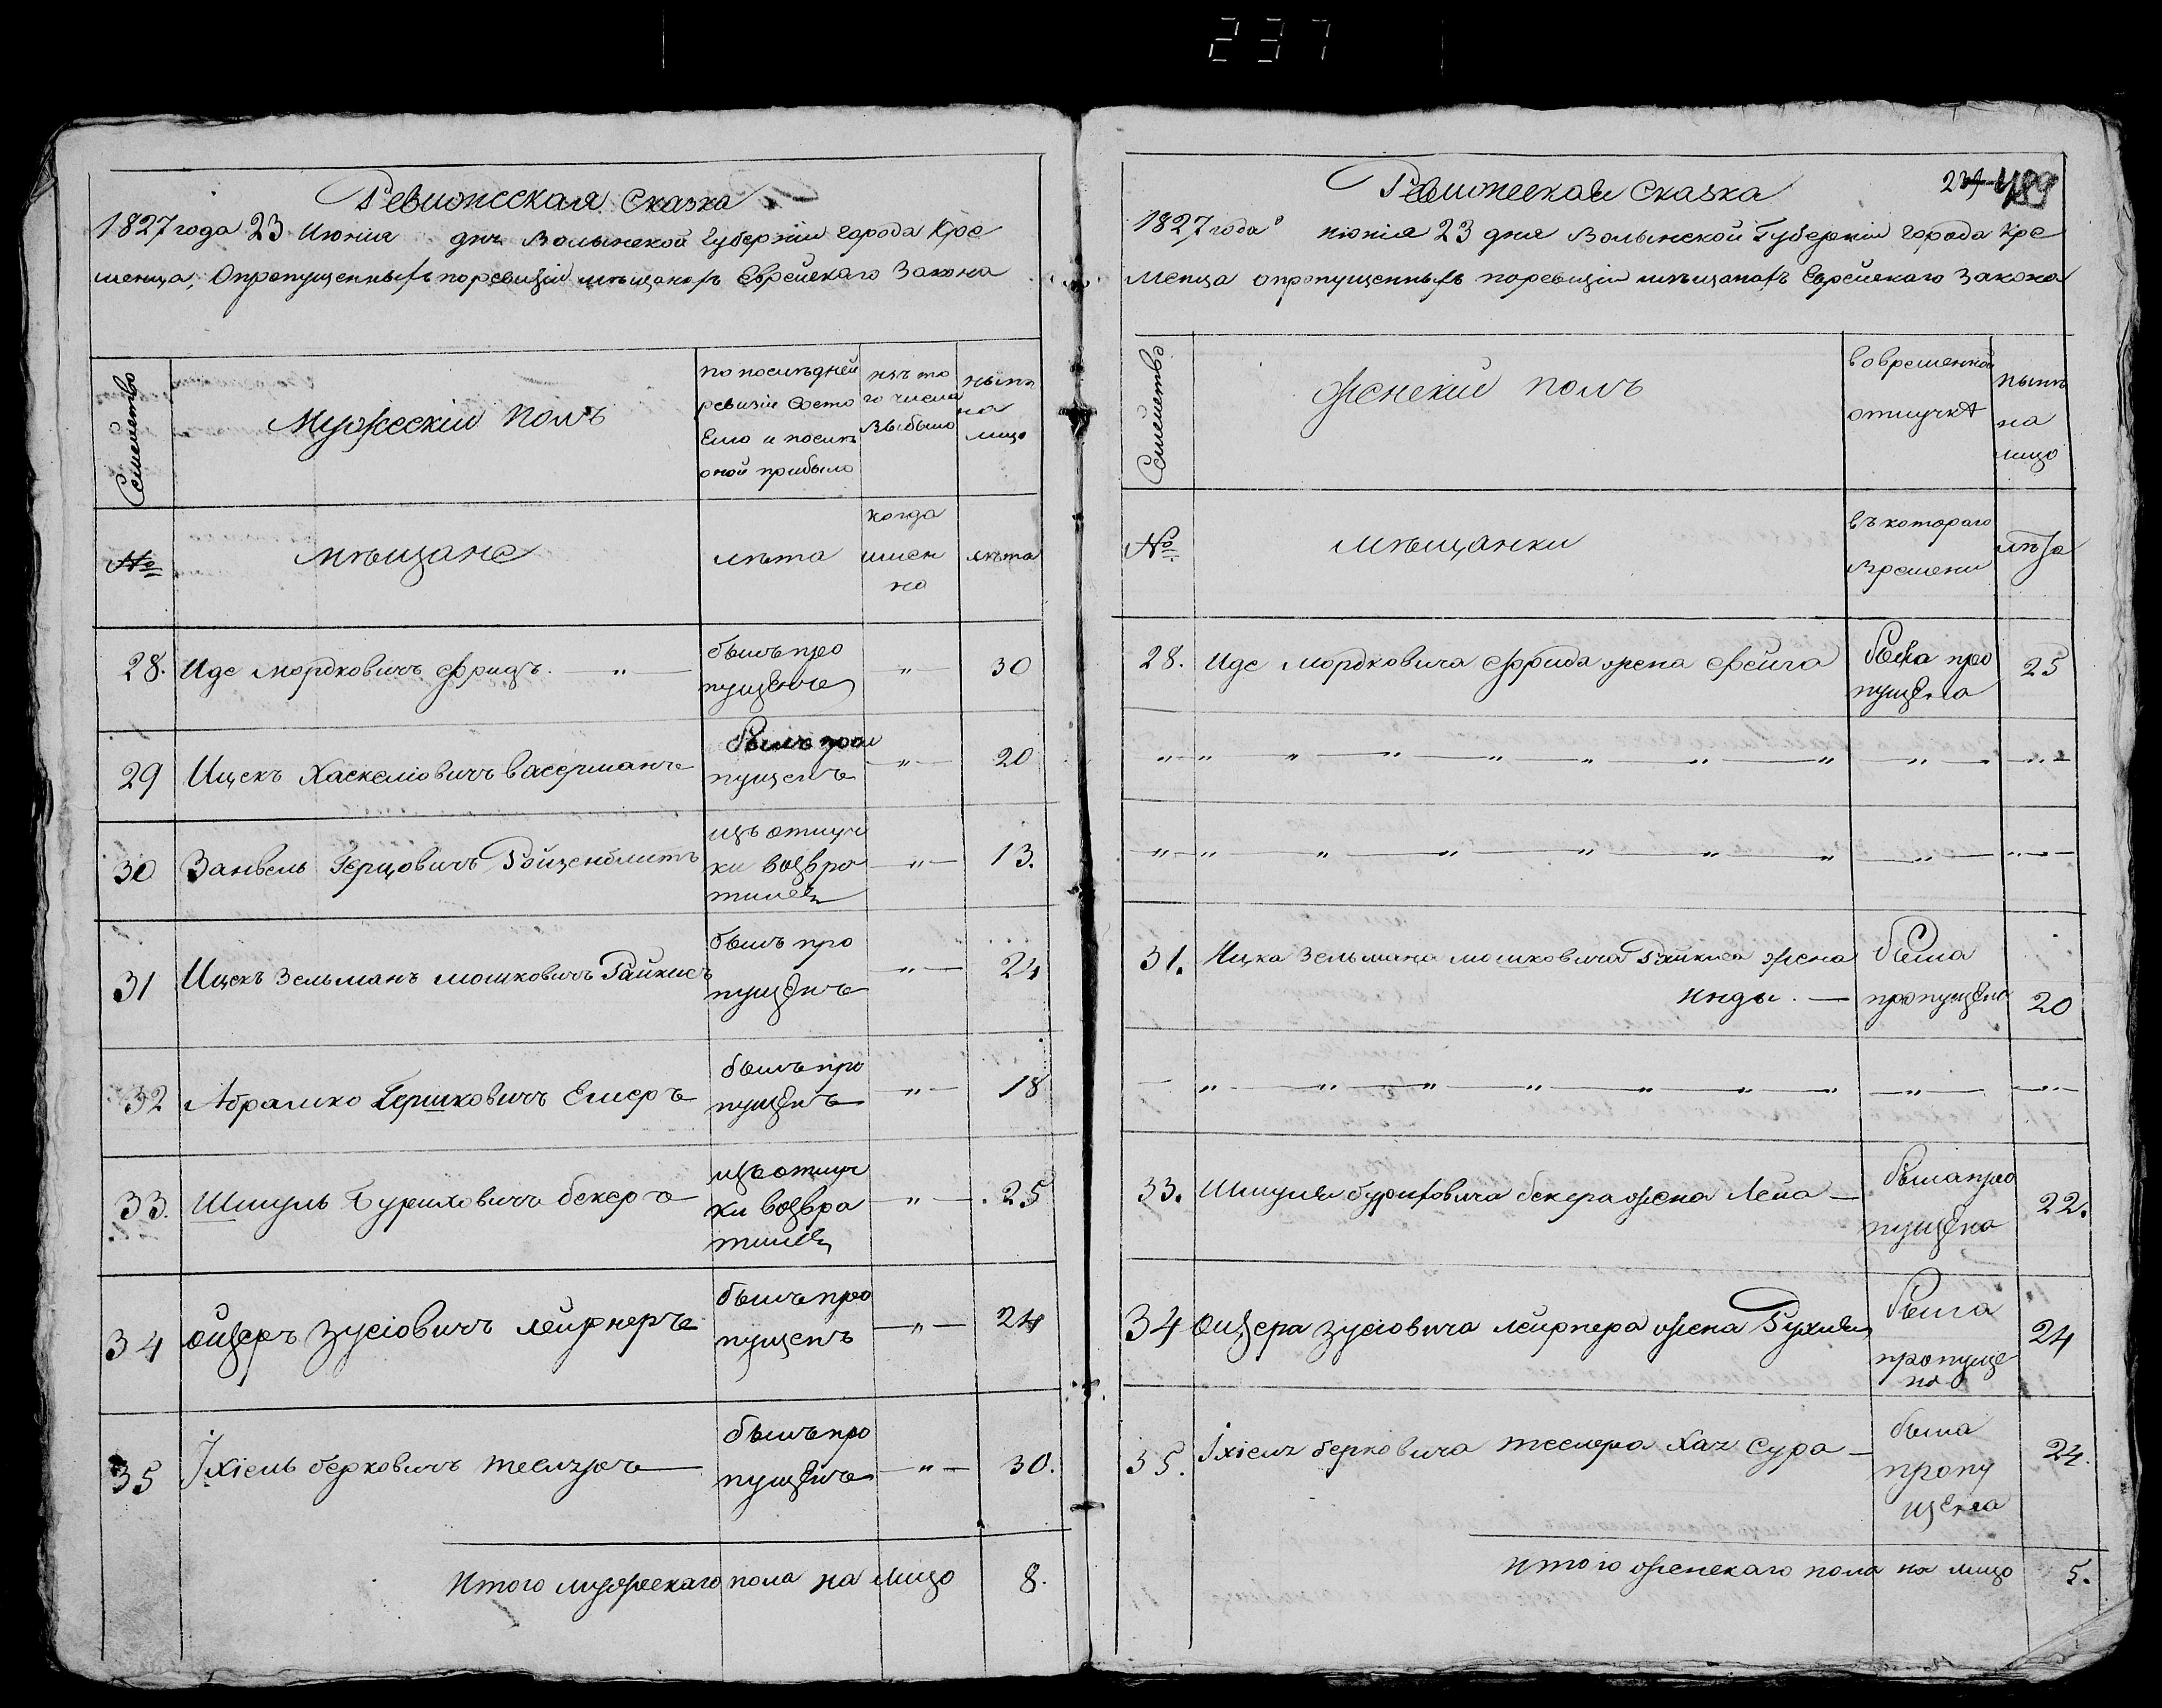 237
Ревижсская Сказка
1827 года 23 Июния дня Волынской Губернии Города Кре
менца, О пропущенныхъ по ревизіи мѣщанахъ Еврейскаго Закона
Семейство
Мужескій полъ
по послѣдней
ревизіи состо
яло и послѣ
оной прибыло
изъ то
го числа
выбыло
нынѣ
на
лицо
№
мѣщане
лѣта
когда
имен
но
лѣта
28. Иде Мордковичъ Фридъ. — " —
былъ про
пущенъ
" — 30
29 Ицекъ Хаскеліовичъ Васерманъ
былъ про
пущенъ
— " — 20
30 Занвель Герцовичъ Ройзенблитъ
изъ отлуч
ки возвро
тился
— " — 13.
31 Ицекъ Зельманъ Мошковичъ Райкисъ
былъ про
пущенъ
" — 24
32 Абрамко Гершковичъ Елмеръ
былъ про
пущенъ
" — 18
33. Шмуль Буриховичъ бекеръ
изъ отлуч
ки возвра
тился
" — 25
34 Ойзеръ Зусіовичъ Лейрнеръ
былъ про
пущенъ
— " — 24
35 Іхіель берковичъ теслеръ —
былъ про
пущенъ
— " — 30.
Итого мужескаго пола на лицо 8.
Ревижская Сказка
1827 года июнія 23 дня Волынской Губерніи города Кре
менца о пропущенныхъ по ревизіи мѣщанахъ Еврейскаго Закона
Семейство
Женскій полъ
во временной
отлучкѣ
нынѣ
на
лицо
№
мѣщанки
въ котораго
времени
лѣта
28. Иде Мордковича Фрида жена Фейга
была про
пущена
25
31. Ицка Зельмана Мошковича Райкиса жена
Инды. —
была
пропущена
20
33. Шмуля буриховича бекера жена Лейа —
была про
пущена
22.
34 Ойзера Зусіовича Лейрнера жена Рухля
была
пропуще
на
24
35. Іхіеля берковича теслера Хая Сура —
была
пропу
щена
24.
Итого женскаго пола на лицо 5.